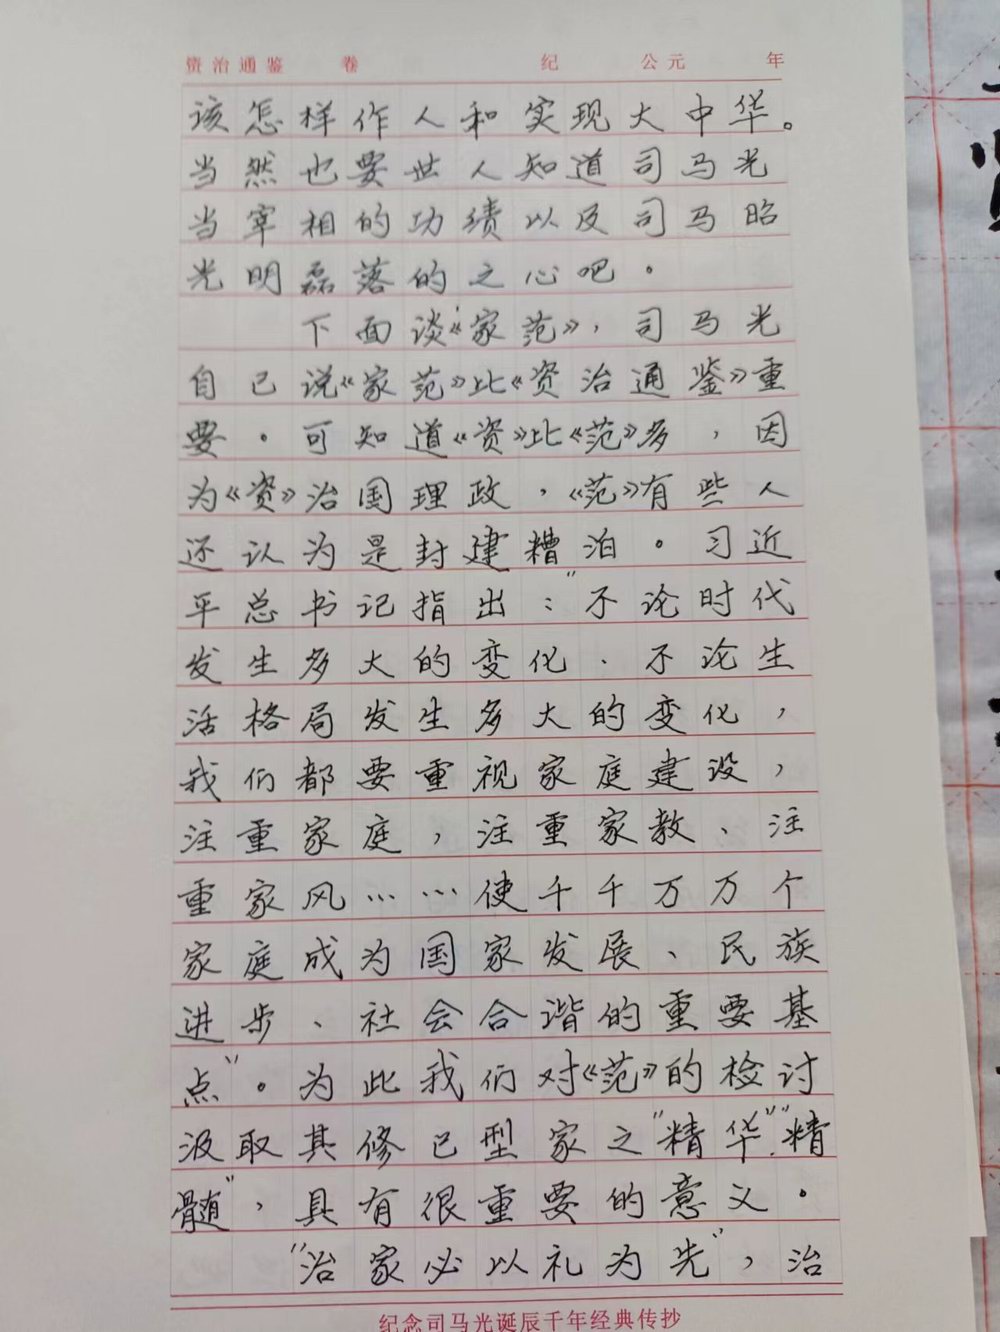 资治通鉴 卷 纪 公元 年
该怎样作人和实现大中华。
当然也要世人知道司马光
当宰相的功绩以及司马昭
光明磊落的之心吧。
下面谈《家范》，司马光
自己说《家范》比《资治通鉴》重
要。可知道《资》比《范》多，因
为《资》治国理政，《范》有些人
还认为是封建糟泊。习近
平总书记指出："不论时代
发生多大的变化、不论生
活格局发生多大的变化，
我们都要重视家庭建设，
注重家庭，注重家教、注
重家风……使千千万万个
家庭成为国家发展、民族
进步、社会合谐的重要基
点"。为此我们对《范》的检讨
汲取其修已型家之"精华""精
髓"，具有很重要的意义。
"治家必以礼为先"，治
纪念司马光诞辰千年经典传抄